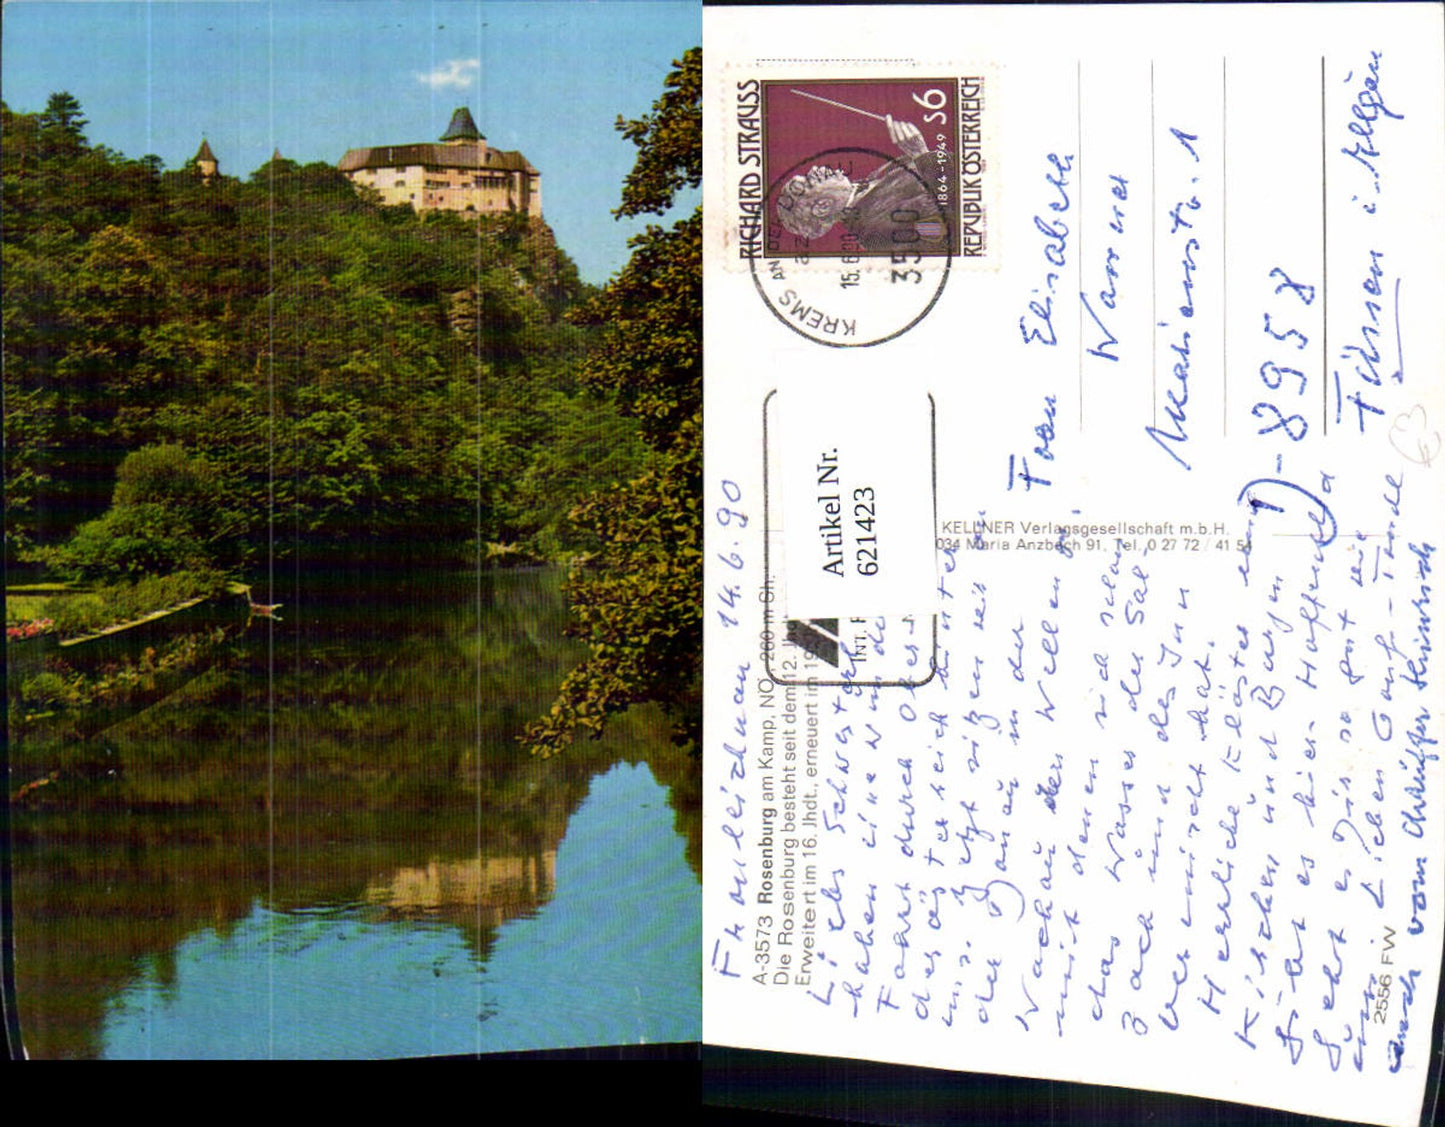 RICHARD STRAUSS
1864-1949
S6
REPUBLIK ÖSTERREICH
KREMS AN DER DONAU
15. 6. 90
3500
Artikel Nr.
621423
A-3573 Rosenburg am Kamp, NÖ, 260 m Sh.
Die Rosenburg besteht seit dem 12.
Erweitert im 16. Jhdt., erneuert im 19
KELLNER Verlagsgesellschaft m.b.H.
034 Maria Anzbach 91, Tel. 0 27 72 / 41 5
2556 FW
14.6.90
Liebes Schwesterl
haben eine
Fahrt durch Ober-
österreich hinter
uns. Jetzt sitzen wir an
der Donau in der
Wachau den Wellen zu,
mit denen sich schon
das Wasser der Salz
ach und des Inn
vermischt hat.
Herrliche Klöster und
Kirchen und Burgen
gibt es hier. Hoffend
geht es Dir so gut wie
uns. Lieben Gruß -
auch vom Heinrich
Frau Elisabeth
Wanner
Marienstr. 1
D-8958
Füssen i. Allgäu